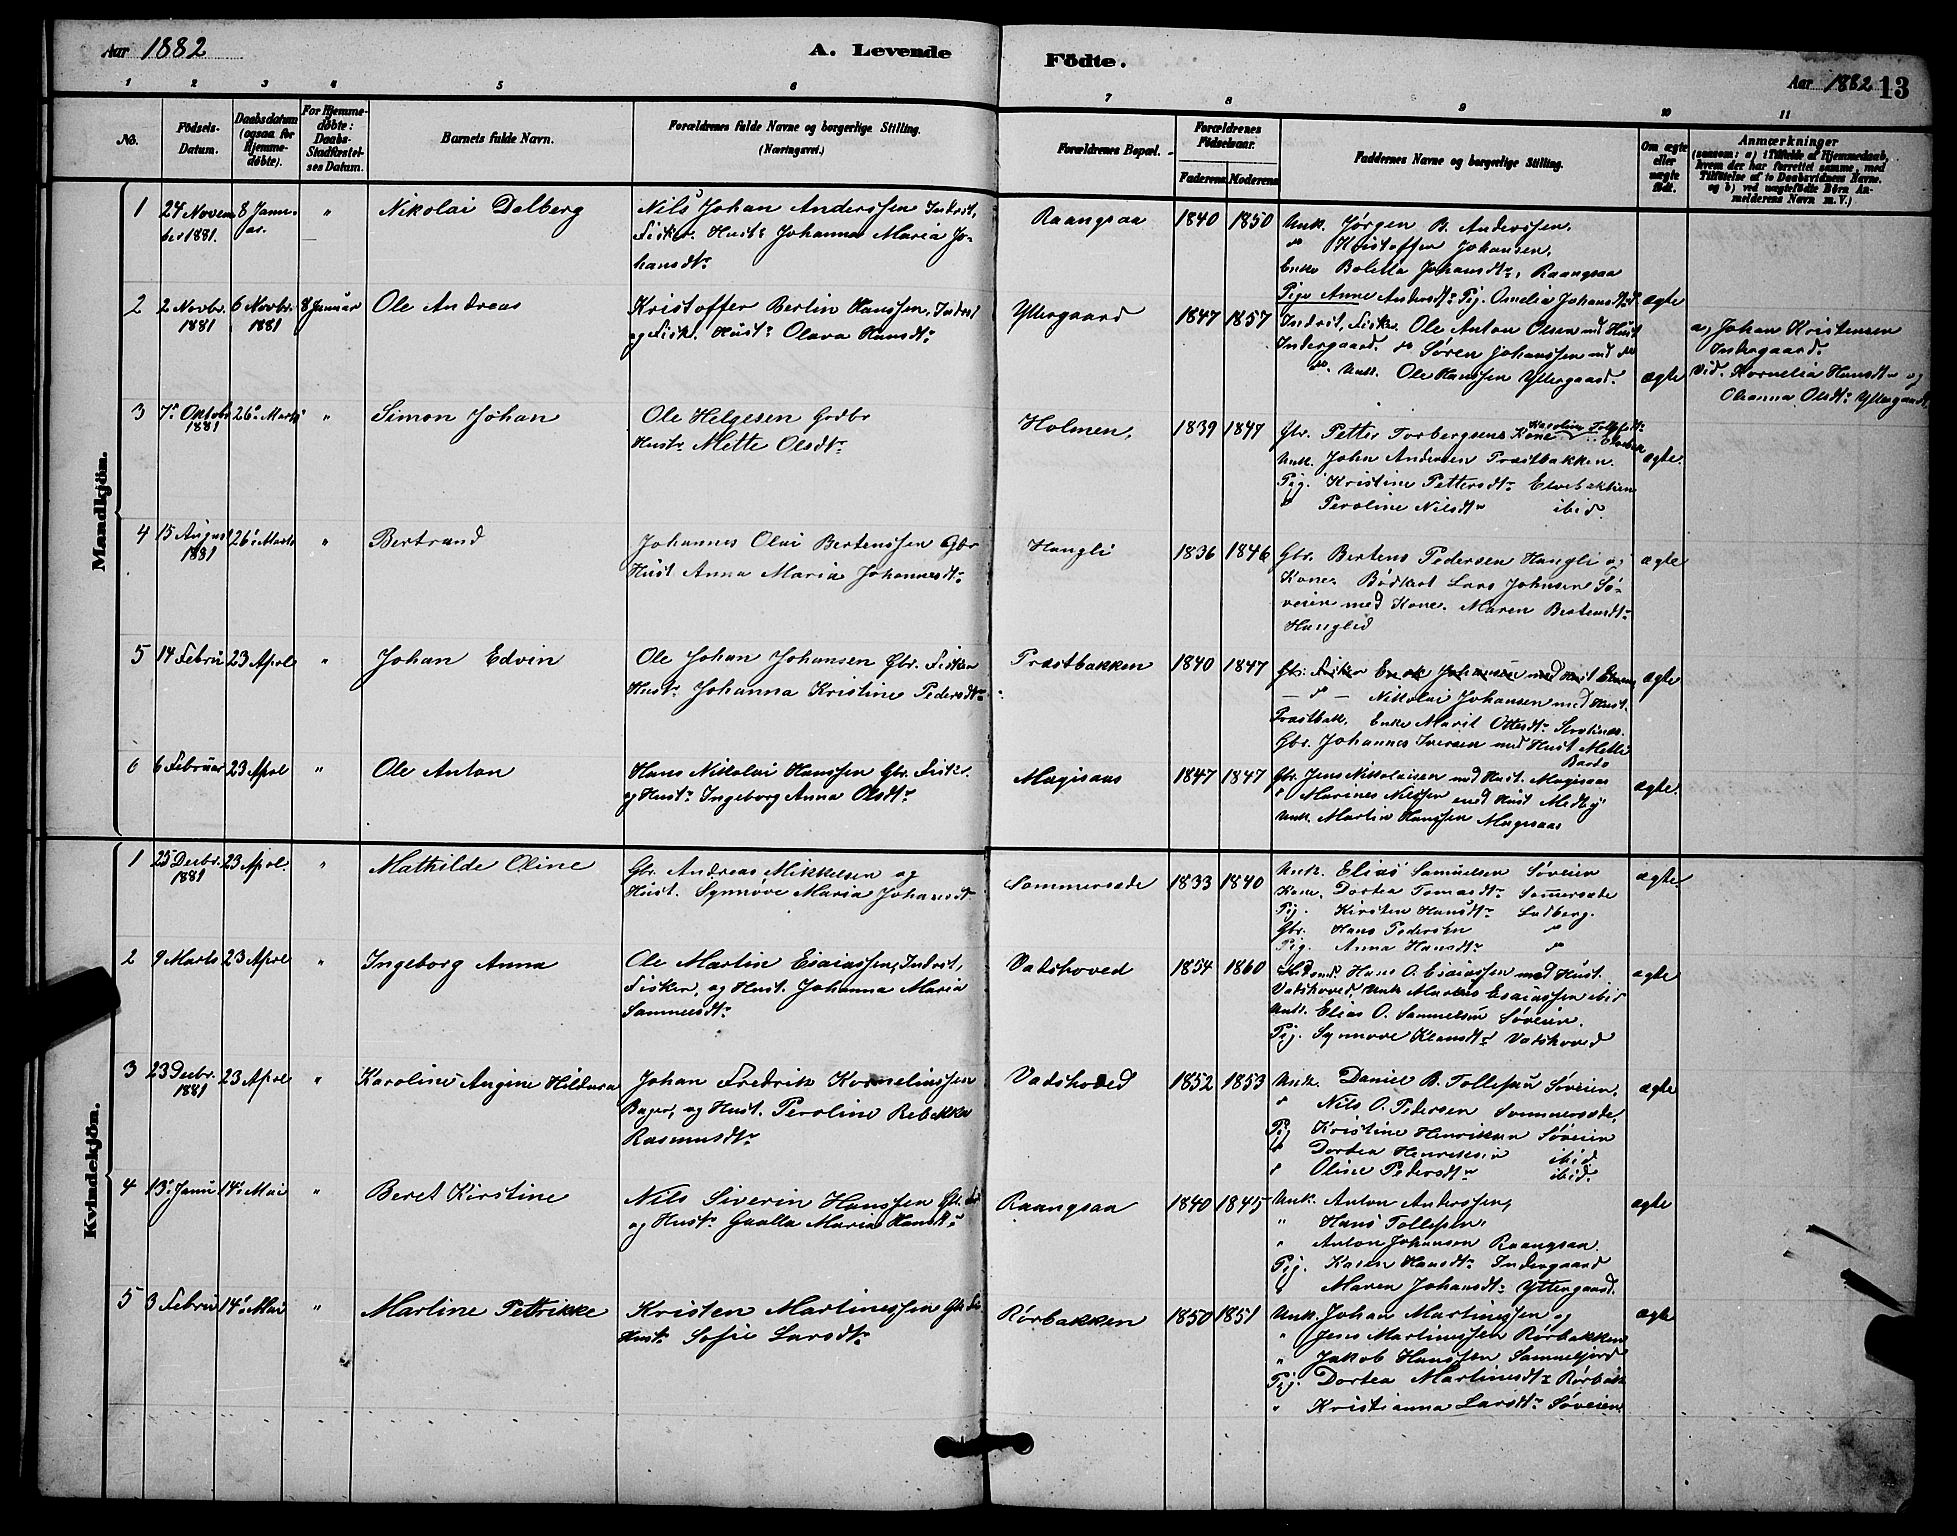 Aar 1882
A. Levende
Födte.
Aar 1882 13
1 2 3 4 5 6 7 8 9 10 11
No.
Födsels-
Datum.
Daabsdatum
(ogsaa for
Hjemme-
döbte).
For Hjemme-
döbte:
Daabs-
Stadfæstel-
ses Datum.
Barnets fulde Navn.
Forældrenes fulde Navne og borgerlige Stilling.
(Næringsvei.)
Forældrenes Bopæl.
Forældrenes
Födselsaar.
Faderens Moderens
Faddernes Navne og borgerlige Stilling.
Om ægte
eller
uægte
födt.
Anmærkninger
(saasom: a) i Tilfælde af Hjemmedaab,
hvem der har forrettet samme, med
Tilföielse af to Daabsvidners Navne,
og b) ved uægtefödte Börn An-
melderens Navn m. V.)
Mandkjön.
1 24 Novem
ber 1881. 8 Janu-
ar. " Nikolai Dalberg
Nils Johan Anderssen Indrst,
Fisker. Hust: Johanna Maria Jo-
hansdtr
Raangsaa 1840 1850
Unk. Jørgen B. Anderssen,
" Kristoffer Johansen,
Enke Boletta Johansdtr, Raangsaa
Pige Anne Andersdtr Pig. Omelia Johansdtr
ægte
2 2 Novbr.
1881 6 Novbr.
1881 8 Januar Ole Andreas
Kristoffer Berlin Hanssen, Indrst
og Fisk. Hustr Olava Hansdtr
Yttergaard 1847 1857
Indrst, Fisker Ole Anton Olsen med Hust
Indergaard. do Søren Johanssen med do
do. Unk. Ole Hanssen Yttergaard.
ægte
a, Johan Kristensen
Indergaard.
Vid. Kornelia Hansdtr og
Olsdtr Yttergaard
3 7 Oktobr
1881 26 Marts " Simon Johan
Ole Helgesen Grdbr
Hustr Mette Olsdtr
Holmen, 1839 1847
Gbr. Petter Torbergsens Kone Karoline
Unk. John Andersen Præstbakken.
Pig. Kristine Pettersdtr Elvebakken
" Peroline Nilsdtr ibid.
ægte.
4 15 August
1881 26 Marts " Bertrand
Johannes Olai Bertenssen Gbr
Hust Anna Maria Johannesdtr
Hangli 1836 1846
Gbr. Bertens Pedersen Hangli og
Kone. Lars Johnsen Sø-
veien med Kone. Maren Bertensdtr
Hanglid
ægte
5 14 Febru 23 April " Johan Edvin
Ole Johan Johansen Gbr. Fisker
Hustr Johanna Kristine Pedersdtr
Præstbakken 1840 1847
Gbr. Fisker Enok Johansen med Hust
— " — Nikolai Johansen med Hust.
Præstbak. Enke Marit Ottesdtr
Gbr. Johannes Iversen med Hust Mette
ægte
6 6 Februar 23 April " Ole Anton
Hans Nikolai Hanssen Gbr. Fisker.
og Hustr Ingeborg Anna Olsdtr
Magisaas 1847 1847
Gbr. Jens Nikolaisen med Hust. Magisaas
" Marines Nilssen med Hust Medby
Unk. Martin Hanssen Magisaas
ægte.
Kvindekjön.
1 25 Decbr.
1881 23 April. " Mathilde Oline
Gbr. Andreas Mikkelsen og
Hust. Synnøve Maria Johansdt
Sommersæde 1833 1840
Unk. Elias Samuelsen Søveien
Kone. Dortea Tomasdtr Sommersæde
Pig. Kirsten Hansdtr Ladberg.
Gbr. Hans Pedersen "
Pig. Anna Hansdtr "
ægte
2 9 Marts 23 April " Ingeborg Anna
Ole Martin Esaiassen, Indrst,
Fisker, og Hust. Johanna Maria
Samuelsdtr
Vadshoved 1854 1860
Hans O. Esaiassen med Hust.
Vadshoved, Unk Esaiassen ibid
Unk. Elias O. Samuelsen Søveien.
Pig. Synnøve Vadshoved
ægte
3 23 Decbr.
1881 23 April " Karoline Angine Hildura
Johan Fredrik Korneliussen
Bager, og Hust. Peroline Rebekka
Rasmusdtr
Vadshoved 1852 1853
Unk. Daniel B. Tollefsen Søveien.
" Nils O. Pedersen Sommersæde,
Pig Kristine Henriksen Søveien
" Dortea Henriksen ibid
" Oline Pedersdtr ibid.
ægte
4 13 Janu 14 Mai " Beret Kirstine
Nils Siverin Hanssen Gbr.
og Hustr Gualla Maria Hansdtr
Raangsaa 1840 1845
Unk. Anton Anderssen,
" Hans Tollefsen,
" Anton Johansen Raangsaa.
Pig. Karen Hansdtr Indergaard
" Maren Johansdtr Yttergaard.
ægte
5 3 Febru 14 Mai " Martine Petrikke
Kristen Martinussen Gbr
Hustr Sofie Larsdtr
Rørbakken 1850 1851
Unk. Johan Martinussen og
" Jens Martinussen Rørbakken
" Jakob Hanssen
Pig. Dortea Martinusdtr Rørbakk
" Kristianna Larsdtr Søveien
ægte